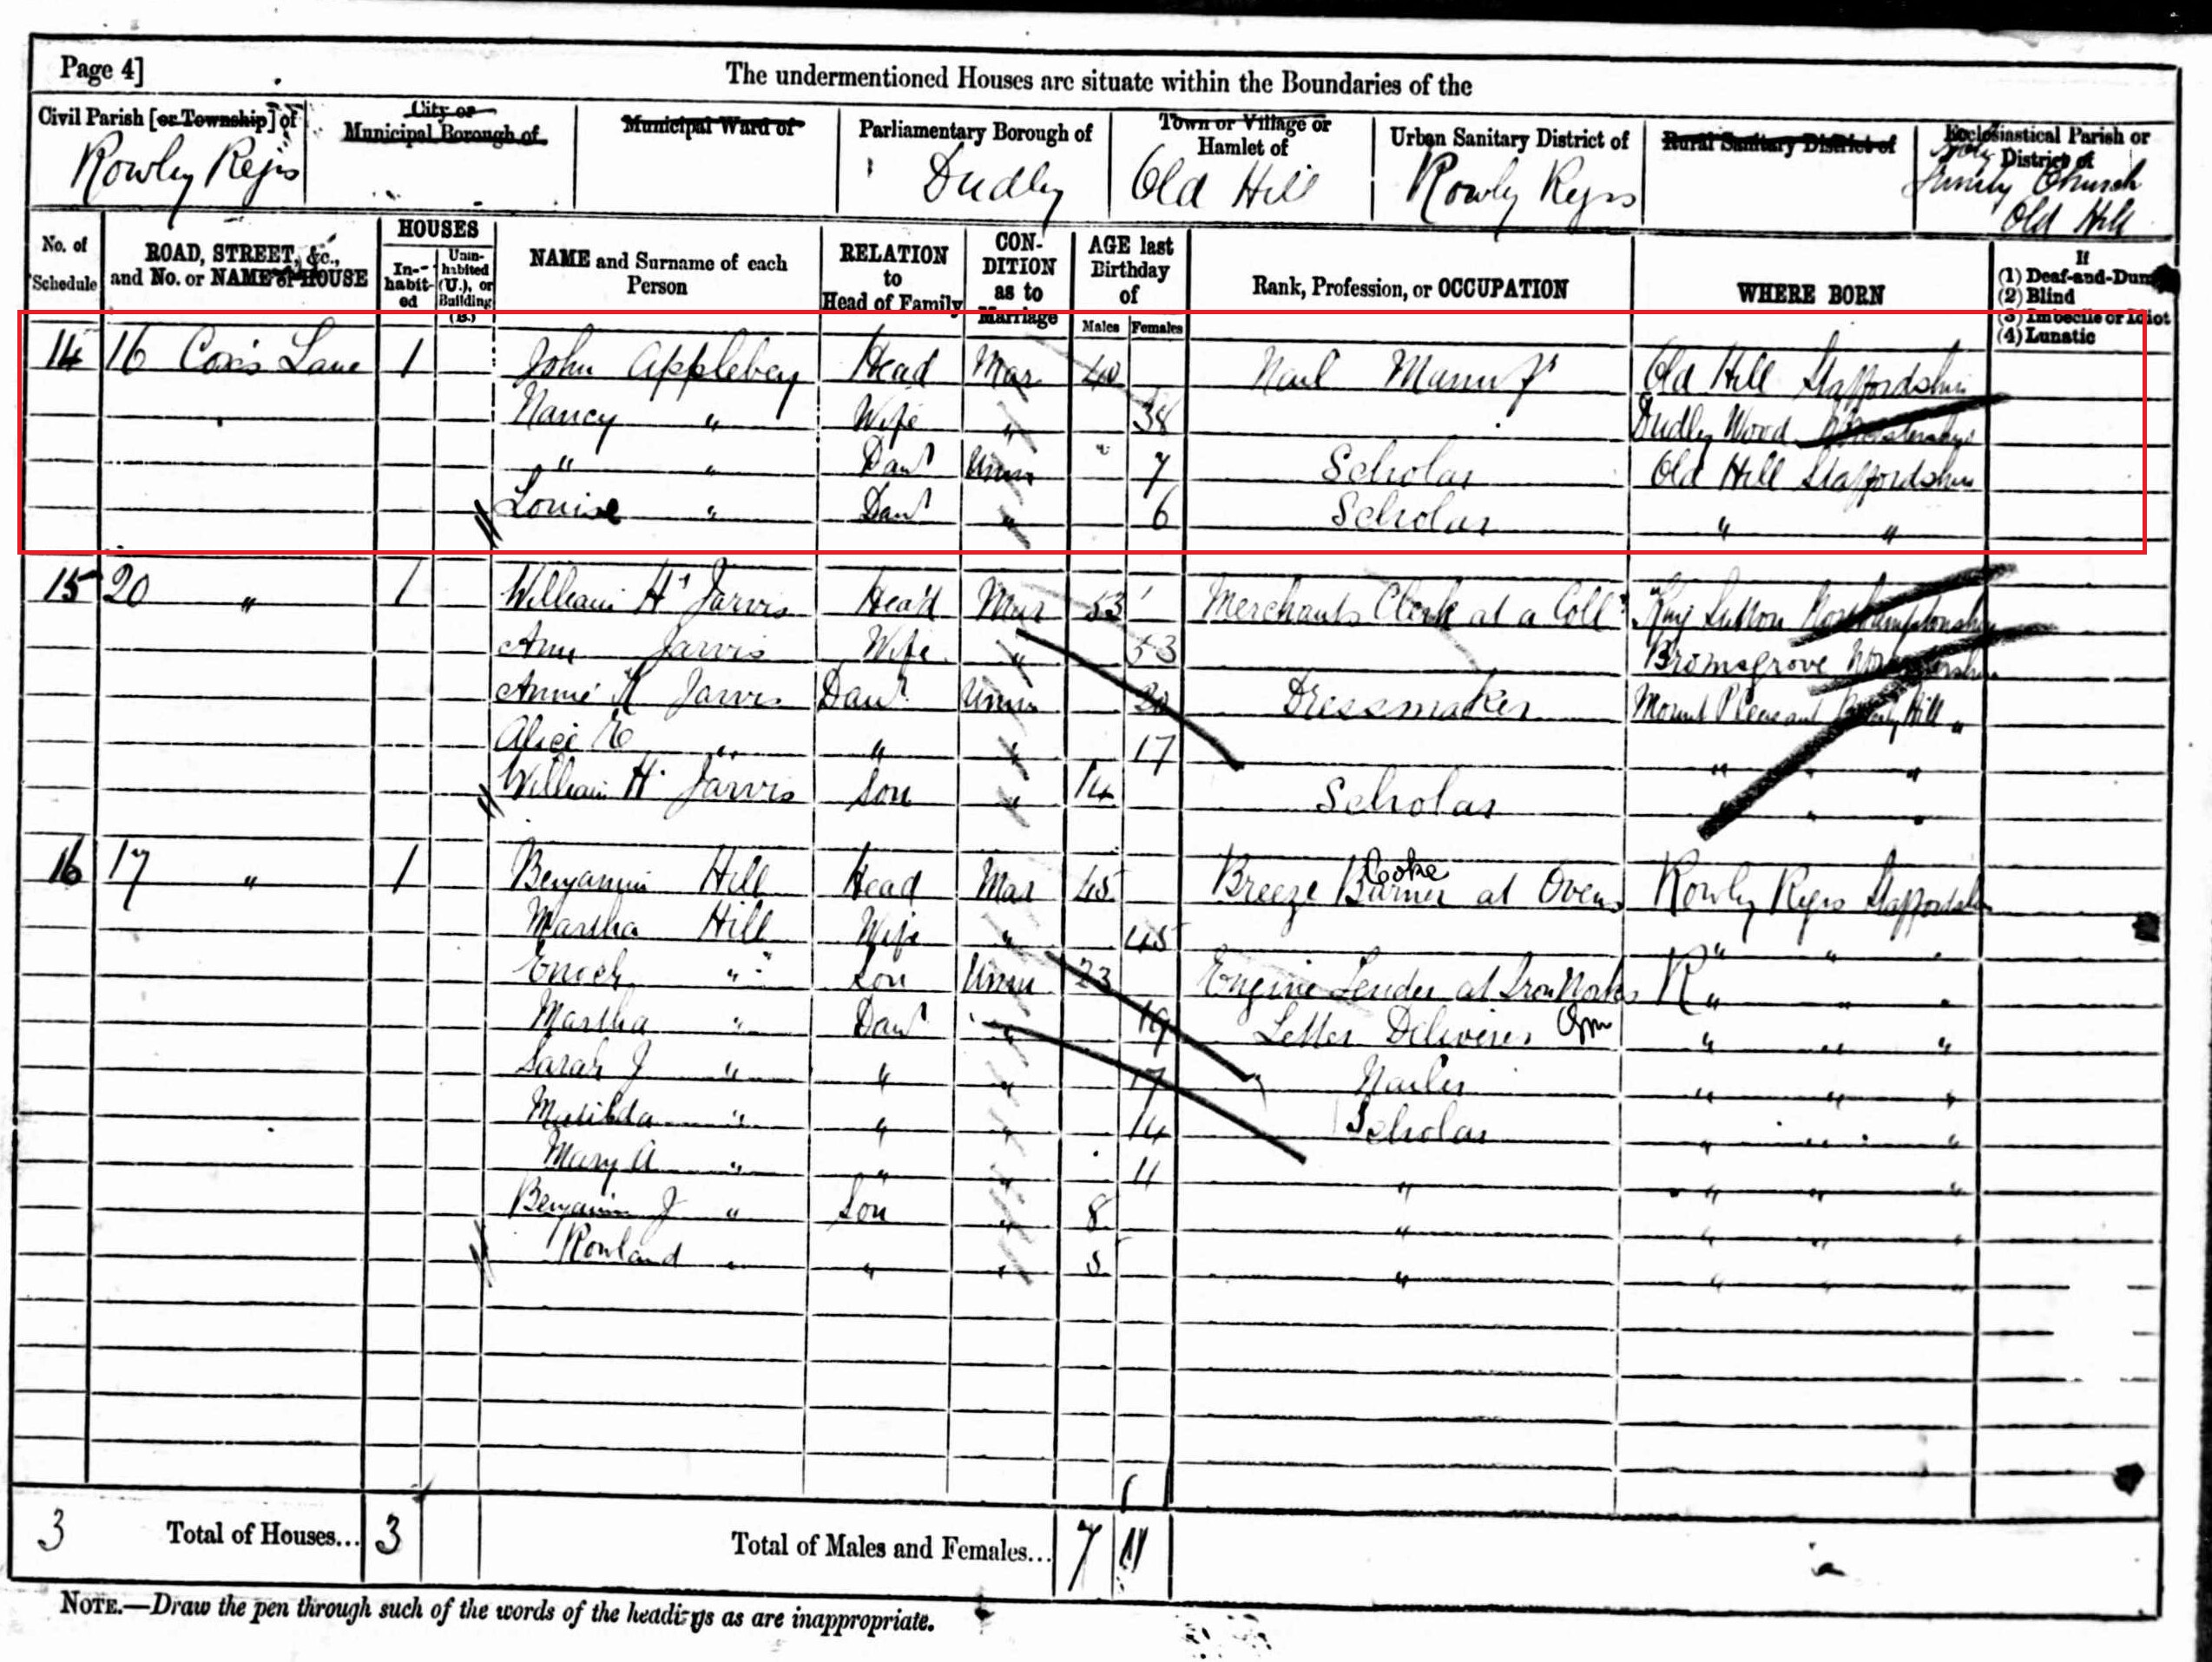 Page 4]
The undermentioned Houses are situate within the Boundaries of the
Civil Parish [or Township] of
City or Municipal Borough of
Municipal Ward of
Parliamentary Borough of
Town or Village or Hamlet of
Urban Sanitary District of
Rural Sanitary District of
Ecclesiastical Parish or District of
Rowly Regis
Dudley
Old Hill
Rowly Regis
Holy Trinity Church Old Hill
No. of Schedule
ROAD, STREET, &c., and No. or NAME of HOUSE
HOUSES
In-habit-ed
Unin-habited (U.), or Building (B.)
NAME and Surname of each Person
RELATION to Head of Family
CON-DITION as to Marriage
AGE last Birthday of
Males Females
Rank, Profession, or OCCUPATION
WHERE BORN
If
(1) Deaf-and-Dumb
(2) Blind
(3) Imbecile or Idiot
(4) Lunatic
14 16 Cox's Lane 1 John Appleby Head Mar 40 Nail Manufr Old Hill Staffordshire
Nancy " Wife " 38 Dudley Wood Worcestershire
" " Daur Unm 7 Scholar Old Hill Staffordshire
Louise " Daur " 6 Scholar " "
15 20 " 1 William Hy Jarvis Head Mar 53 Merchants Clerk at a Coll King Sutton Northamptonshire
Ann Jarvis Wife " 53 Bromsgrove Worcestershire
Annie K Jarvis Daur Unm 20 Dressmaker Mount Pleasant Hill "
Alice E " " " 17 " " "
William H. Jarvis Son " 14 Scholar " "
16 17 " 1 Benjamin Hill Head Mar 45 Breeze Burner at Coke Ovens Rowly Regis Staffordshire
Martha Hill Wife " 45 " " "
Enoch " Son Unm 23 Engine Tender at Iron Works R " " "
Martha " Daur " 19 Letter Deliverer " " "
Sarah J " " " 17 Nailer " " "
Matilda " " " 14 Scholar " " "
Mary A " " " 11 " " " "
Benjamin J " Son " 8 " " " "
Rowland " " " 5 " " " "
3 Total of Houses... 3 Total of Males and Females... 7 11
NOTE.—Draw the pen through such of the words of the headings as are inappropriate.